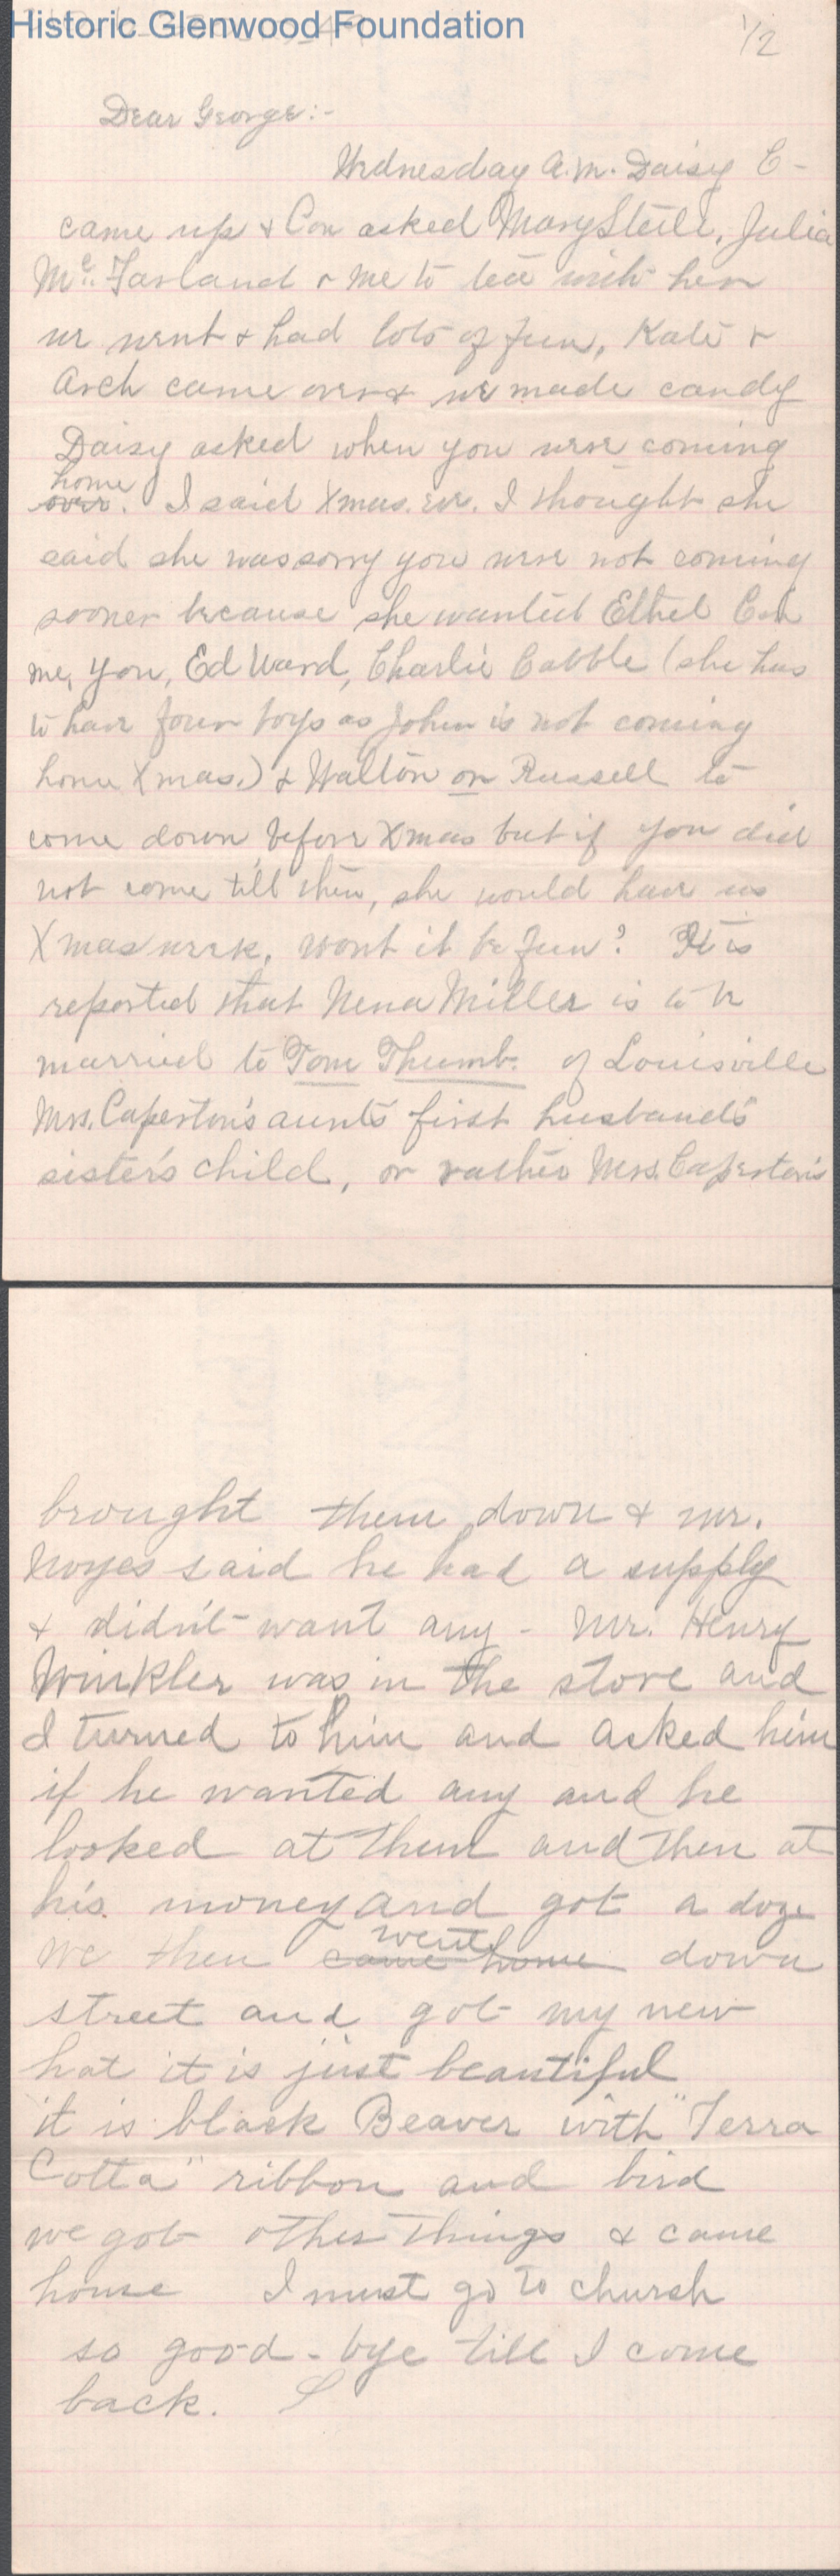 Historic Glenwood Foundation
1/2
Dear George:-
Wednesday a.m. Daisy C-
came up & Con asked Mary Steele, Julia
McFarland & me to tea with her
we went & had lots of fun, Kate &
Arch came over & we made candy
Daisy asked when you were coming
home
over. I said Xmas. eve. I thought she
said she was sorry you were not coming
sooner because she wanted Ethel Con
me, you, Ed Ward, Charlie Cabble (she has
to have four boys as John is not coming
home Xmas.) & Walton or Russell to
come down before Xmas but if you did
not come till then, she would have us
Xmas week, wont it be fun? It is
reported that Nena Miller is to be
married to Tom Thumb. of Louisville
Mrs. Caperton's aunt's first husband's
sister's child, or rather Mrs. Caperton's
brought them down & mr.
Noyes said he had a supply
& didn't want any - Mr. Henry
Winkler was in the store and
I turned to him and asked him
if he wanted any and he
looked at them and then at
his money and got a doze
went
we then came home down
street and got my new
hat it is just beautiful
it is black Beaver with "Terra
Cotta" ribbon and bird
we got other things & came
home I must go to church
so good-bye till I come
back.